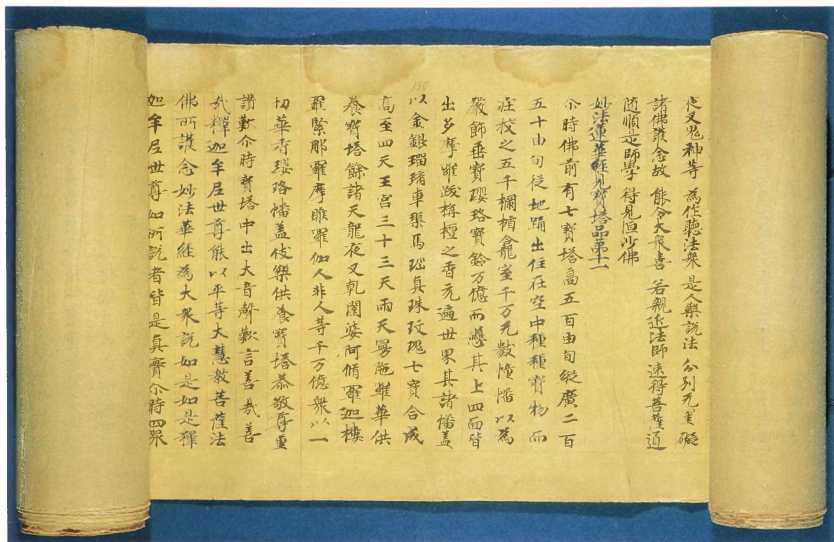 夜叉鬼神等 為作聽法衆 是人樂說法 分別无罣礙
諸佛護念故 能令大衆喜 若親近法師 速得菩薩道
随順是師學 得見恒沙佛
妙法蓮華經見寶塔品第十一
尒時佛前有七寶塔高五百由旬縱廣二百
五十由旬從地踊出住在空中種種寶物而
莊挍之五千欄楯龕室千万无數幢幡以為
嚴飾垂寶瓔珞寶鈴万億而懸其上四面皆
出多摩羅跋栴檀之香充遍世界其諸幡盖
以金銀瑠璃車𤦲馬瑙真珠玫瑰七寶合成
高至四天王宮三十三天雨天曼陁羅華供
養寶塔餘諸天龍夜叉乾闥婆阿脩羅迦樓
羅緊那羅摩睺羅伽人非人等千万億衆以一
切華香瓔珞幡盖伎樂供養寶塔恭敬尊重
讃歎尒時寶塔中出大音聲歎言善哉善
哉釋迦牟尼世尊能以平等大慧教菩薩法
佛所護念妙法華經為大衆說如是如是釋
迦牟尼世尊如所說者皆是真實尒時四衆